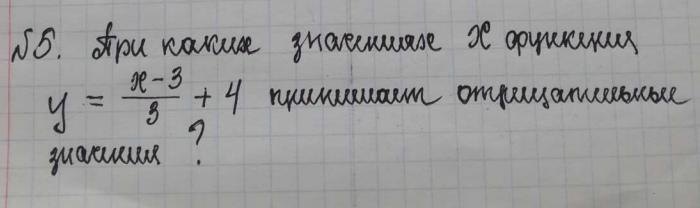 №5. При каких значениях x функция
y = \frac{x-3}{3} + 4 принимает отрицательные
значения ?